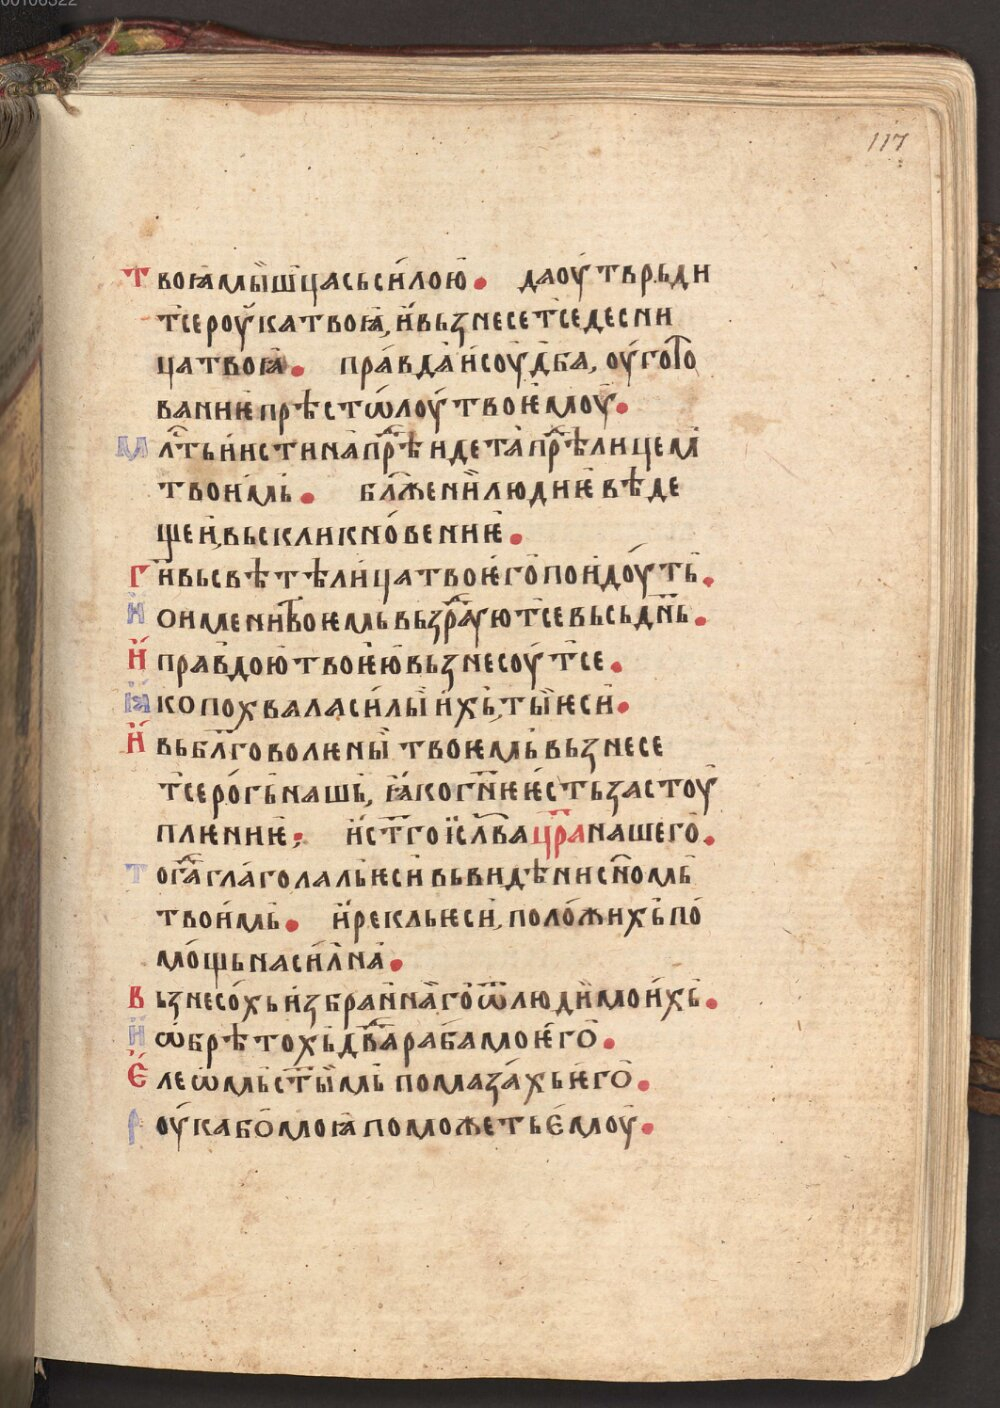 117
Твоꙗ мы́шца сь си́лою. да оу́тврьди
т҇се роу́ка твоꙗ̀, и҆ вьꙁнесет҇се десни
ца твоꙗ̀. пра́вда и҆ соуд́ба, оу҆гото
ваниѥ прѣстѡ́лоу твоѥ̀моу̀.
Мл҇ть и҆ истина прⷣѣидета прⷣѣ лицемⷨа
твои́мь. бл҃жени людиѥ вѣде
щеи, вьскликно́вениѥ.
Г҃и вь свѣтѣ лица твоѥ҆го̀ поидоу́ть.
И҆ о имени твоѥмь вьꙁрⷣаую́т҇се вьсь дн҃ь.
И҆ правдою̀ твоѥю̀ вьꙁнесоу́т҇се.
Ꙗко похвала си́лы и́хь, ты̀ ѥсѝ.
И҆ вь бл҃говолѥны̀ твоѥмь вьꙁнесе
т҇се ро́гь нашь, ꙗ҆ко гн҃ѥ ѥ҆сть ꙁастоу
плѥниѥ; и҆ ст҃го і҆сл҃ва цр҃а нашего̀.
Тогⷣа гла́голаль ѥсѝ вь видѣни сн҃омь
твои́мь. и҆ рекль ѥсѝ, поло́жихь по́
мо́щь на си́лна̀.
Вьꙁнесо́хь и́ꙁбранна̀го̀ ѿ люди мои́хь.
И҆ ѡбрѣтохь дв҃да раба моѥ҆го̀.
Е҆леѡмь ст҃ымь помаꙁа́хь ѥго̀.
Роу́ка бо̀ моꙗ̀ поможеть ѐмоу̀.